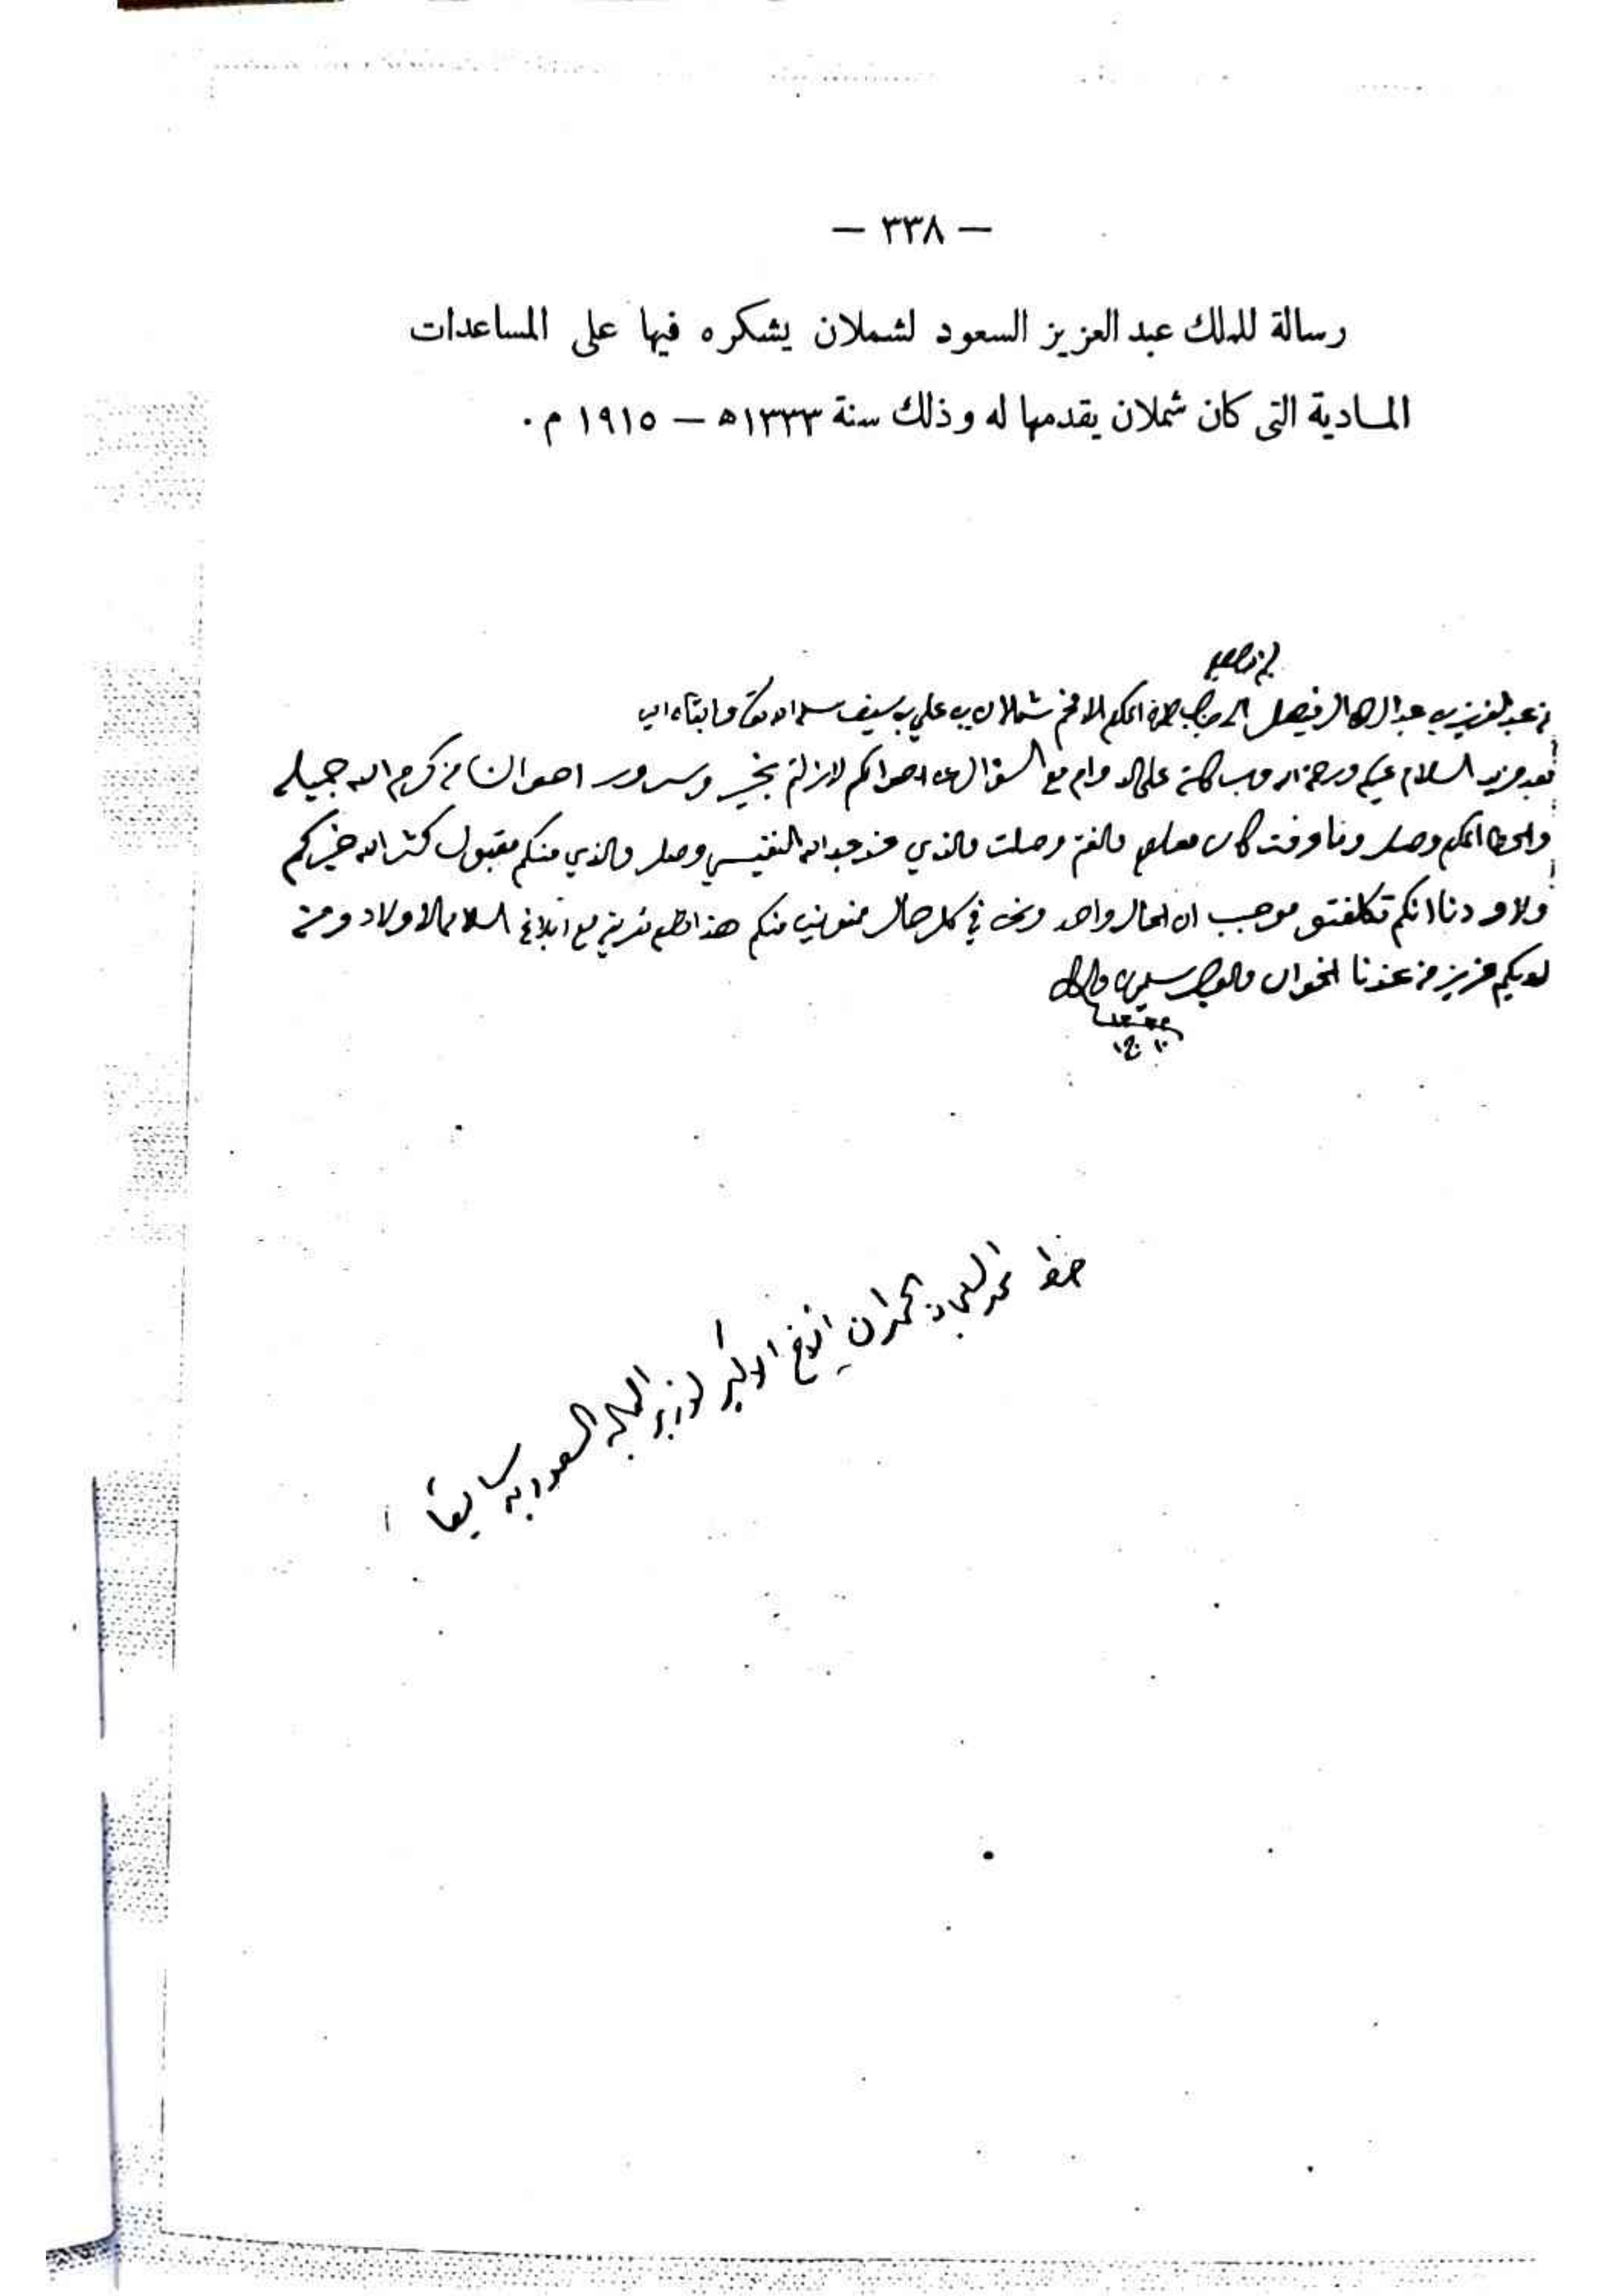 — ٣٣٨ —
رسالة للملك عبد العزيز السعود لشملان يشكره فيها على المساعدات
المادية التى كان شملان يقدمها له وذلك سنة ١٣٣٣ه — ١٩١٥ م .
من عبد العزيز بن عبد الرحمن الفيصل الى جناب المكرم الافخم شملان بن علي بن سيف سلمه الله تعالى وابقاه امين
بعد مزيد السلام عليكم ورحمة الله وبركاته على الدوام مع السؤال عن احوالكم لازلتم بخير وسرور احوالنا من كرم الله جميله
والخط المكرم وصل وما عرفت كان معلوم وصلت والذي عند عبد الله النفيسي وصل والذي منكم مقبول كثر الله خيركم
ولا ودنا انكم تكلفتو موجب ان الحال واحد ونحن في كل حال ممنونين منكم هذا مالزم تعريفه مع ابلاغ السلام الاولاد ومن
لديكم عزيز من عندنا الاخوان والعيال يسلمون والسلام
خط محمد السليمان الحمدان الاخ الاكبر لوزير الماليه السعوديه سابقاً